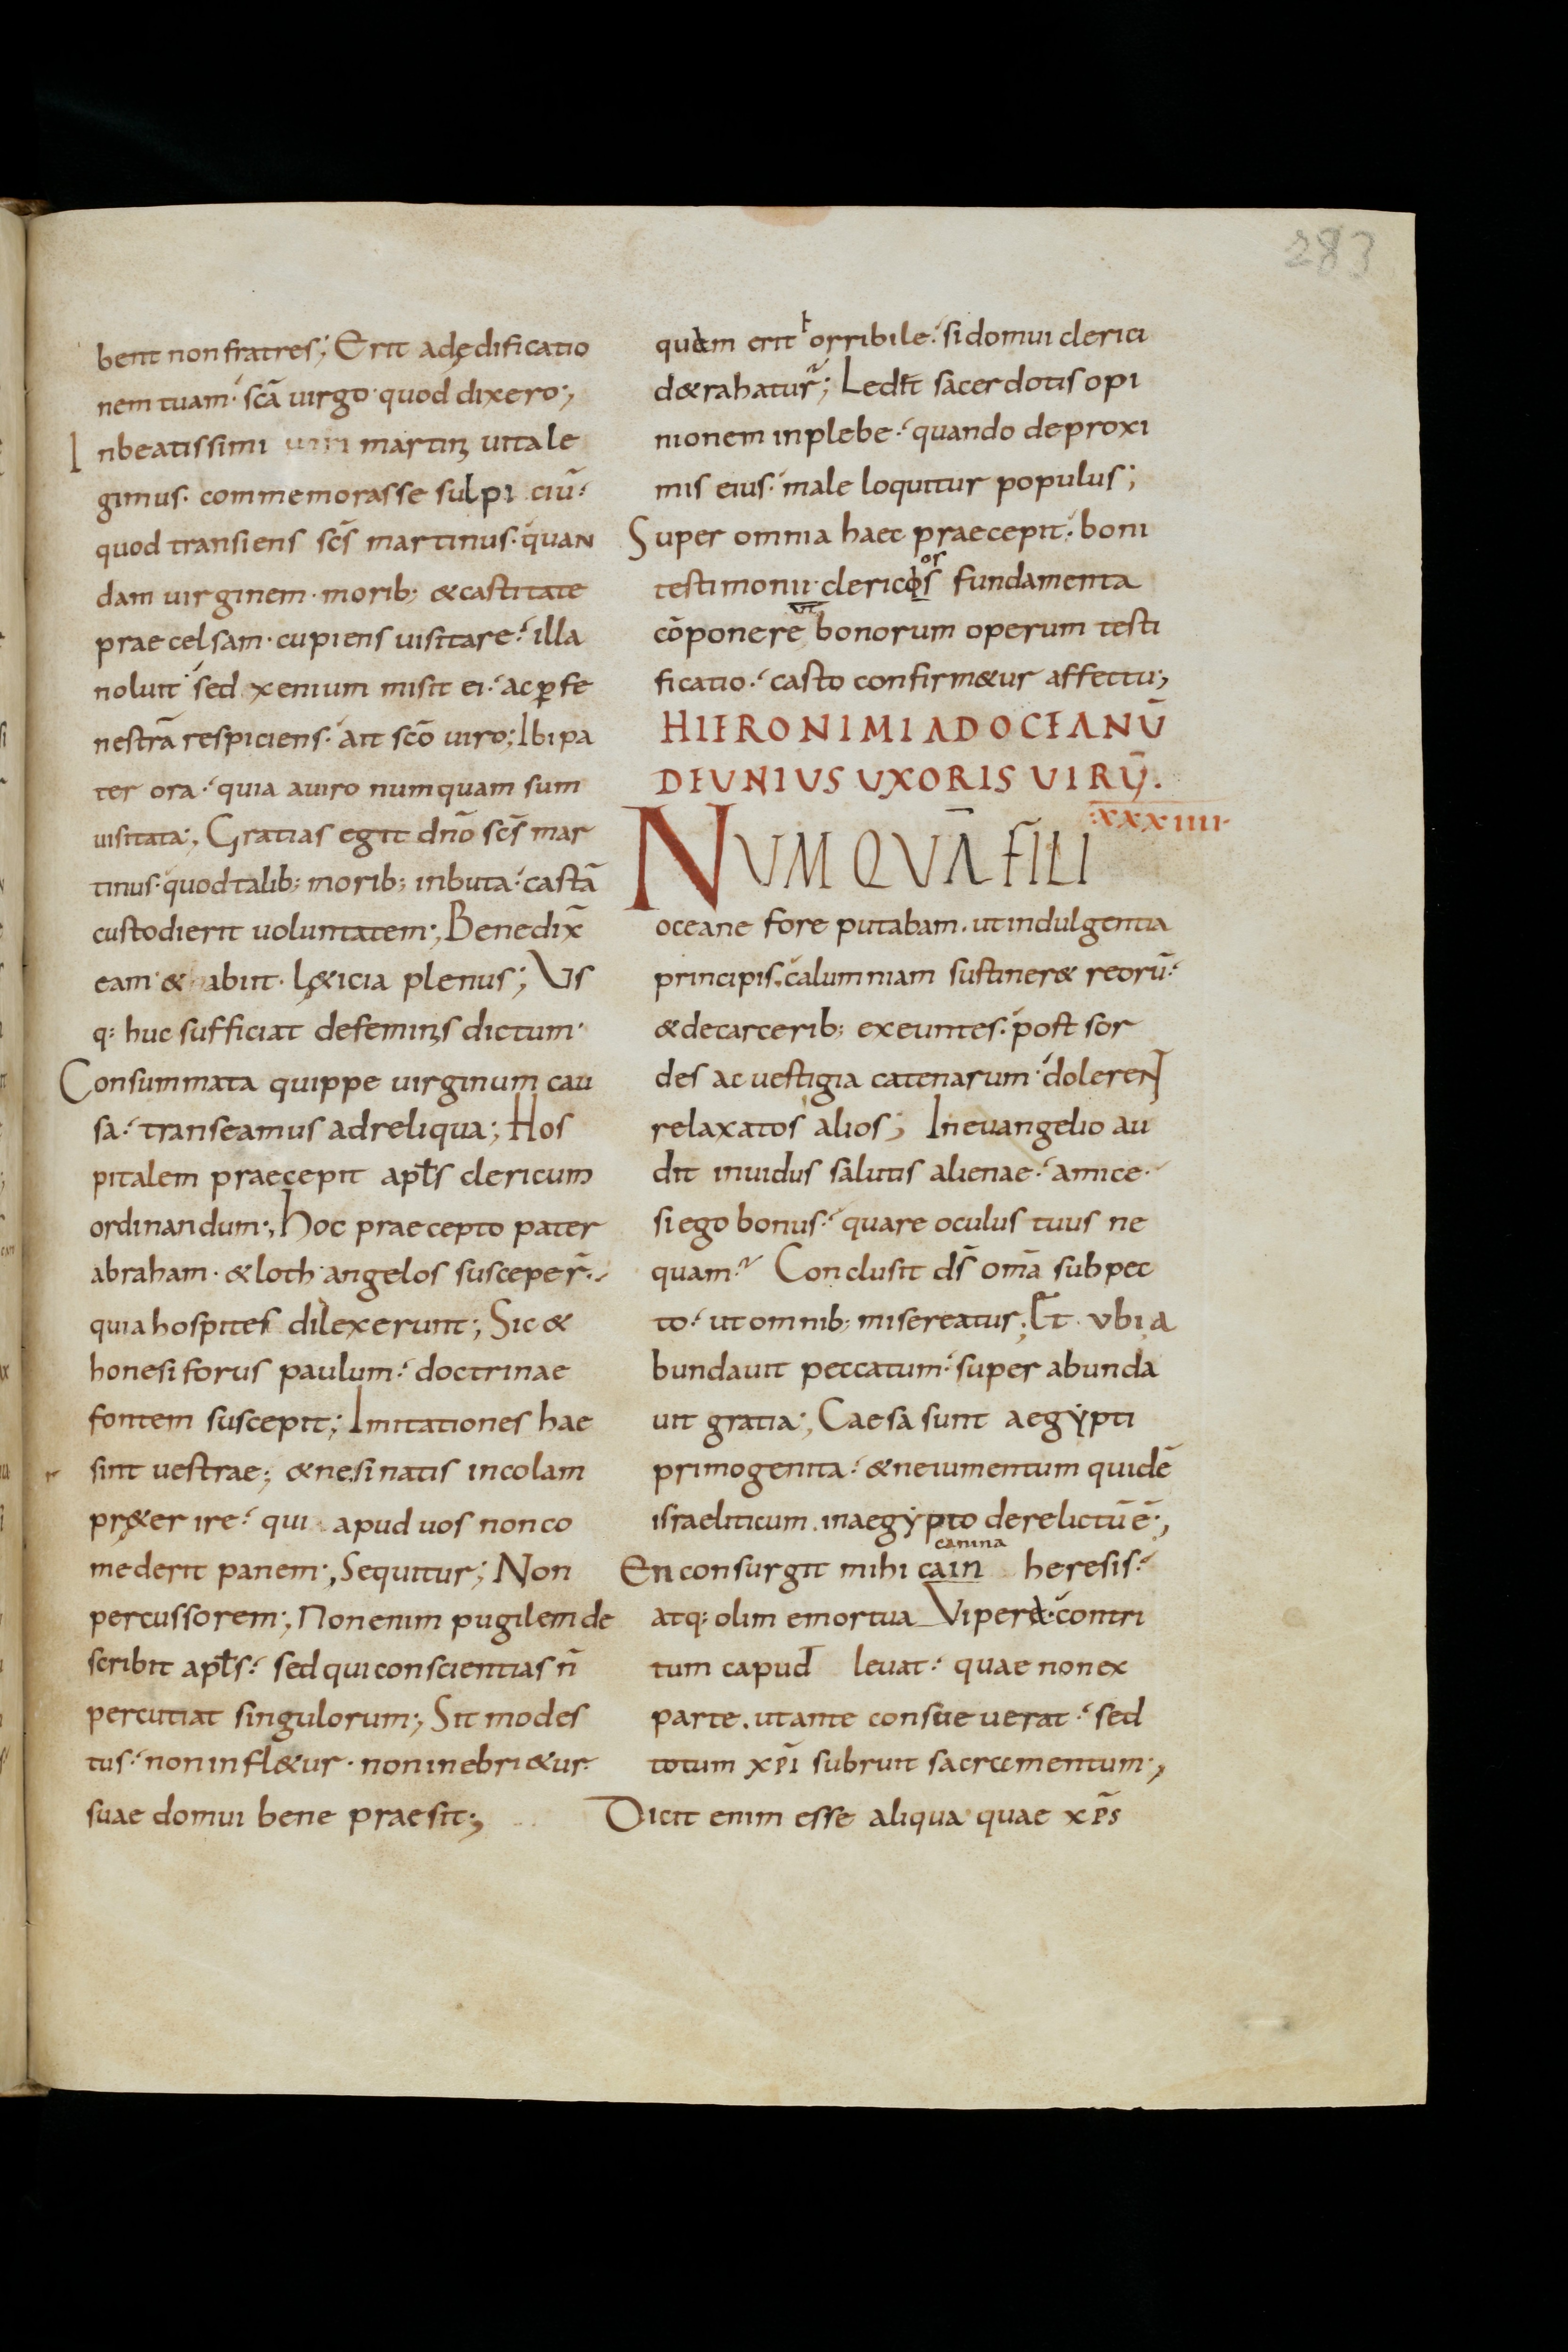 283
bent non fratres; Erit adędificatio
nem tuam· scā uirgo· quod dixero;
Inbeatissimi uiri martini uita le
gimus· commemorasse sulpi ciū·
quod transiens scs̄ martinus· quan
dam uirginem· morib; & castitate
praecelsam· cupiens uisitare· illa
noluit sed xenium misit ei· ac ꝑ fe
nestrā respiciens· ait scō uiro; Ibi pa
ter ora· quia auiro numquam sum
uisitata; Gratias egit dn̄o scs̄ mar
tinus· quod talib; morib; inbuta· castā
custodierit uoluntatem; Benedix̄
eam & abiit· lę&icia plenus; Us
q: huc sufficiat defeminis dictum·
Consummata quippe uirginum cau
sa· transeamus adreliqua; Hos
pitalem praecepit apłs clericum
ordinandum; hoc praecepto pater
abraham· & loth angelos susceper̄·
quia hospites dilexerunt; Sic &
honesiforus paulum· doctrinae
fontem suscepit; Imitationes hae
sint uestrae; & nesinatis incolam
prę&erire· qui apud uos non co
mederit panem; Sequitur; Non
percussorem; Non enim pugilem de
scribit apłs· sed qui conscientias n̄
percutiat singulorum; Sit modes
tus· non infl&ur· non inebri&ur·
suae domui bene praesit;
quàm erit orribile· si domui clerici
d&rahatur; Ledit sacerdotis opi
nionem inplebe· quando deproxi
mis eius· male loquitur populus;
Super omnia haec praecepit· boni
or
testimonii· clericos fundamenta
ut
cōponere bonorum operum testi
ficatio· casto confirm&ur affectu;
HIERONIMI AD OCEANŪ
DE UNIUS UXORIS UIRŪ.
XXXIIII
NUMQUĀ FILI
oceane fore putabam· ut indulgentia
principis· calumniam sustiner& reorū·
& decarcerib; exeuntes· post sor
des ac uestigia catenarum· dolerent
relaxatos alios; In euangelio au
dit inuidus salutis alienae· amice·
si ego bonus· quare oculus tuus ne
quam· Conclusit ds̄ omā sub pec
to· ut omnib; misereatur; Et ubi a
bundauit peccatum· super abunda
uit gratia; Caesa sunt aegẏpti
primogenita· & neiumentum quidē
israeliticum· inaegẏpto derelictū ē;
canina
En consurgit mihi cain heresis·
atq: olim emortua Vipera· contri
tum capud leuat· quae non ex
parte· ut ante consueuerat· sed
totum xpī subruit sacramentum;
Dicit enim esse aliqua quae xps̄